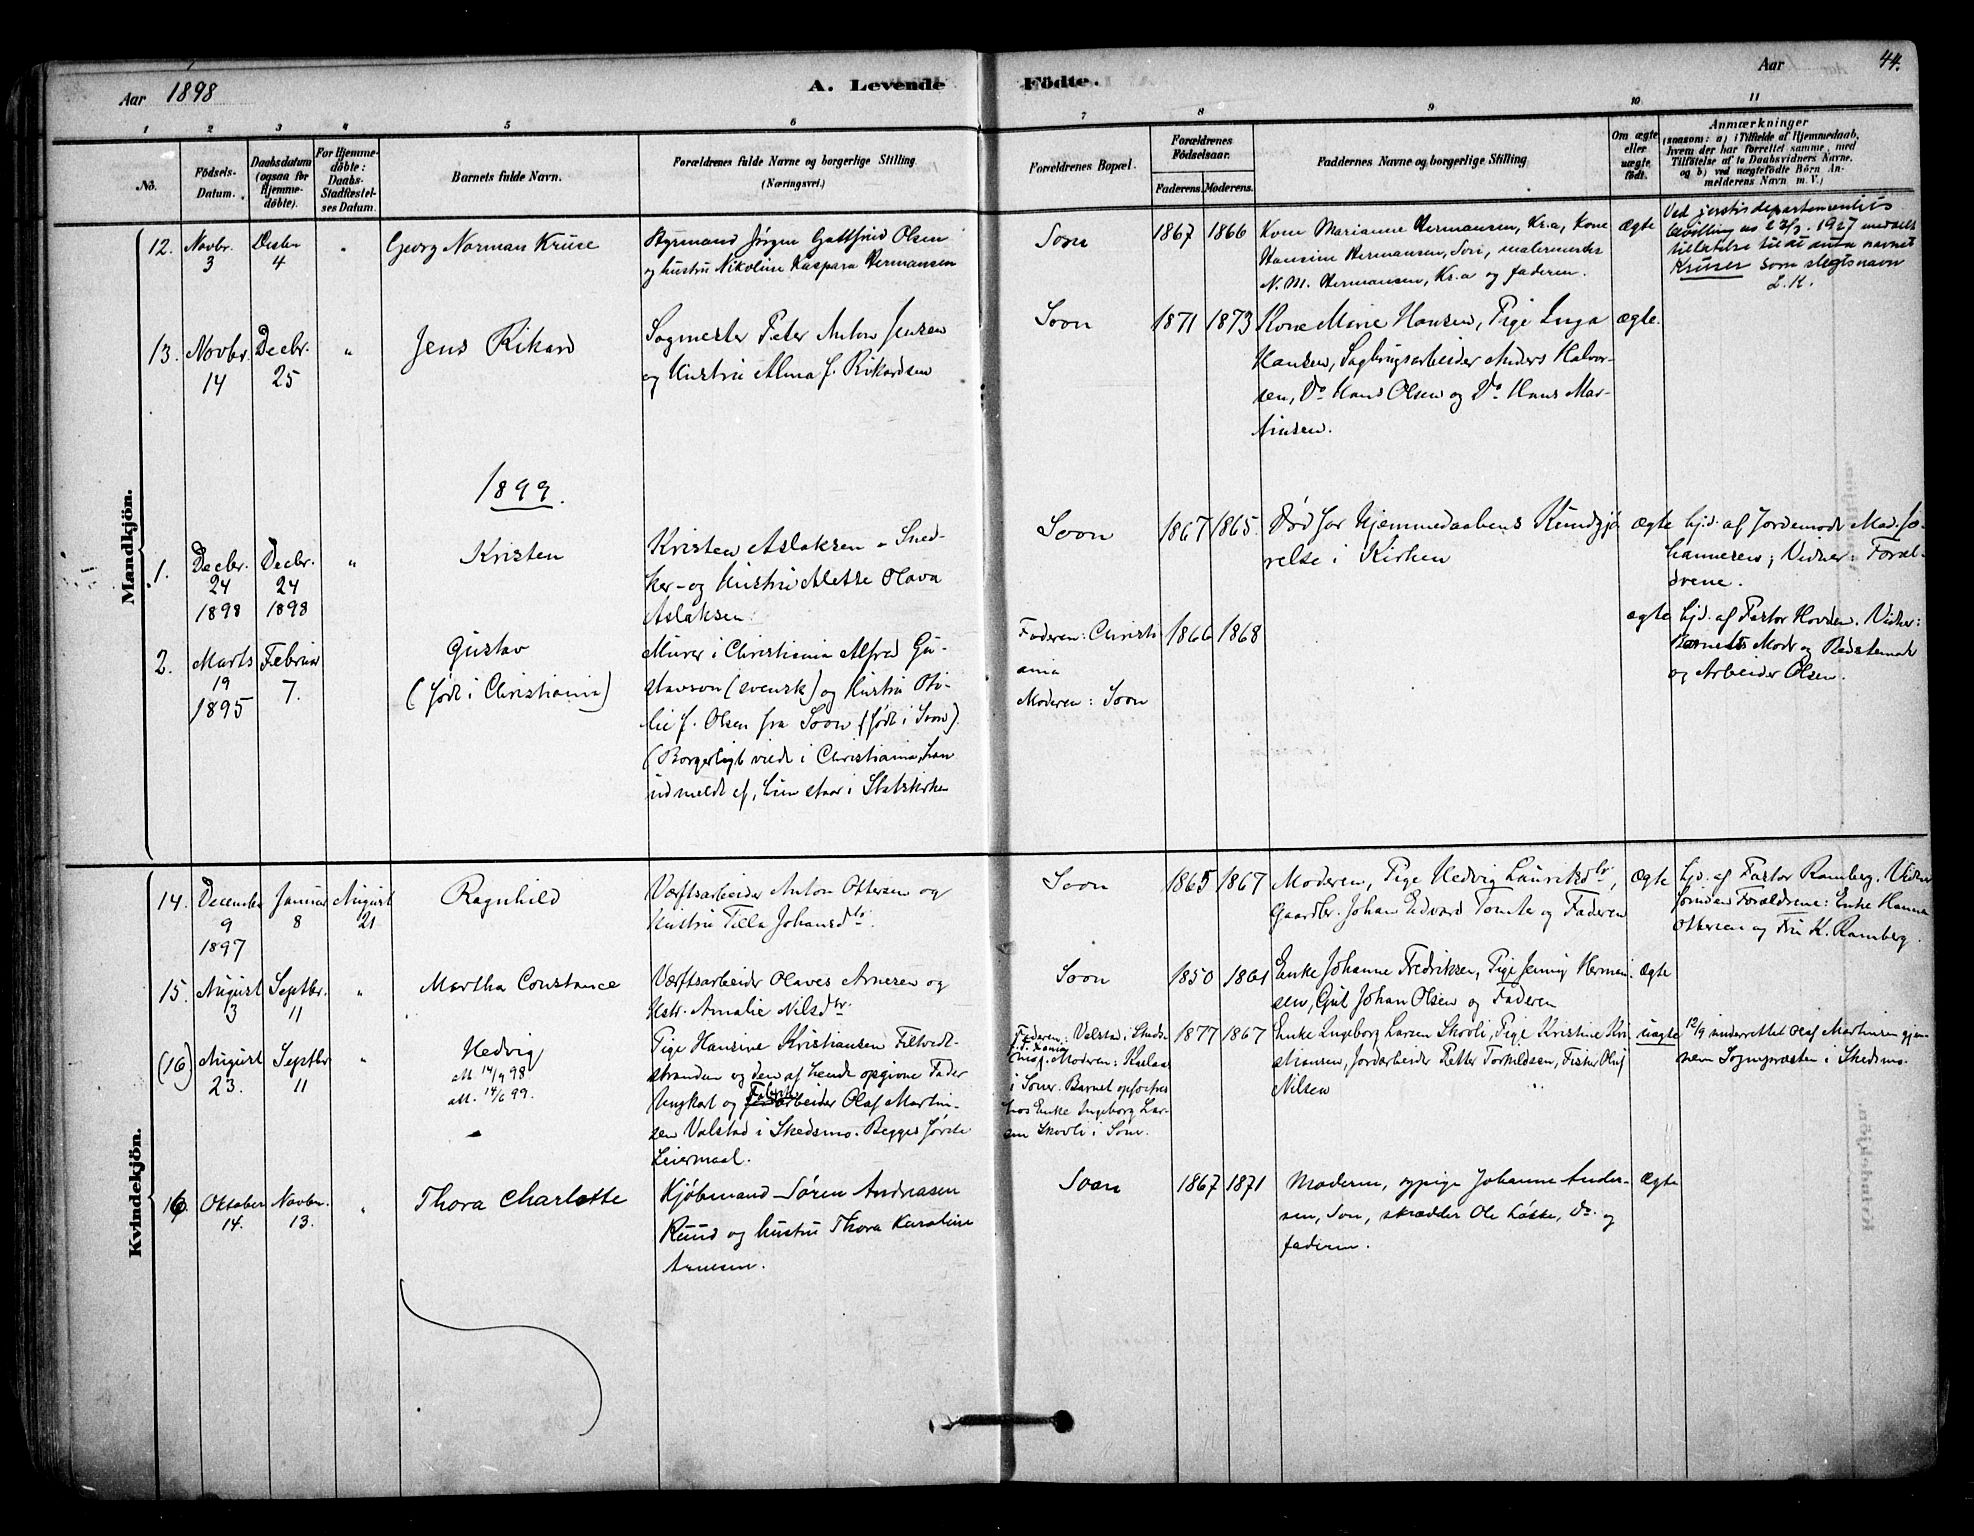 Aar 1898
A. Levende
Födte.
Aar
44.
1 2 3 4 5 6 7 8 9 10 11
No.
Födsels-
Datum.
Daabsdatum
(ogsaa for
Hjemme-
døbte).
For Hjemme-
döbte:
Daabs-
Stadfæstel-
ses Datum.
Barnets fulde Navn.
Forældrenes fulde Navne og borgerlige Stilling
(Næringsvei.)
Forældrenes Bopæl.
Forældrenes
Födselsaar.
Faderens. Moderens.
Faddernes Navne og borgerlige Stilling
Om ægte
eller
uægte
födt.
Anmærkninger
(saasom: a) i Tilfælde af Hjemmedaab,
hvem der har forrettet samme, med
Tilföielse af to Daabsvidners Navne,
og b) ved uægtefödte Börn An-
melderens Navn m. V.)
Mandkjön.
12.
Novbr.
3
Desbr
4
"
Georg Norman Kruse
Styrmand Jörgen Gottfried Olsen
og hustru Nikoline Kaspara Hermansen
Soon
1867
1866
Kone Marianne Hermansen, Kr.a, Kone
Hansine Hermansen, Son, malermester
N. M. Hermansen, Kr.a og faderen.
ægte
Ved justisdepartementets
bevilling av 22/3. 1927 meddelt
tilladelse til at anta navnet
Kruser som slegtsnavn
L. K.
13.
Novbr.
14
Decbr.
25
"
Jens Rikard
Sagmester Peter Anton Jensen
og Hustru Alma f. Rikardsen
Soon
1871
1873
Kone Marie Hansen, Pige Inga
Hansen, Sagbrugsarbeider Anders Halvor-
sen, Do Hans Olsen og Do Hans Mar-
tinsen.
ægte.
1899.
1.
Decbr.
24
1898
Decbr.
24
1898
"
Kristen
Kristen Aslaksen - Sned-
ker - og Hustru Alette Olava
Aslaksen
Soon
1867
1865
Död før Hjemmedaabens Kundgjø
relse i Kirken
ægte
hjd. af Jordemoder Mad. Jo-
hannesen; Vidner: Foræl-
drene.
2.
Marts
19
1895
Februar
7.
Gustav
(født i Christiania)
Murer i Christiania Alfred Gu-
stavson (svensk) og Hustru Oti-
lie f. Olsen fra Soon (født i Soon)
(Borgerligt viede i Christiania, han
udmeldt af, hun staar i Statskirken
Faderen: Christi
ania
Moderen: Soon
1866
1868
ægte
hjd. af Pastor Hovden. Vidner:
Barnets Moder og Bedstemoder
og Arbeider Olsen.
Kvindekjön.
14.
December
9
1897
Januar
8
August
21
Ragnhild
Værftsarbeider Anton Ottersen og
Hustru Tilla Johansdtr.
Soon
1865
1867
Moderen, Pige Hedvig Lauritsdtr,
Gaardbr. Johan Edvard Tomter og Faderen
ægte
hjd. af Pastor Ramberg. Vidner
foruden Forældrene: Enke Hanna
Ottersen og Fru K. Ramberg.
15.
August
3
Septbr.
11
"
Martha Constance
Værftsarbeider Olaves Arnesen og
Hstr. Amalie Nilsdtr.
Soon
1850
1861
Enke Johanne Fredriksen, Pige Jenny Herman-
sen, Gut Johan Olsen og Faderen
ægte
(16)
August
23.
Septbr
11
"
Hedvig
M 14/9 98
M. 14/6 99.
Pige Hansine Kristiansen Filtvedt-
stranden og den af hende opgivne Fader
Ungkarl og Fabrikarbeider Olaf Martin-
sen Valstad i Skedsmo. Begges første
Leiermaal.
Faderen: Valstad i Skeds-
mo. Moderen:
i Soner. Barnet opfostres
hos Enke Ingeborg Lar-
sen Skovli i Soner.
1877
1867
Enke Ingeborg Larsen Skovli, Pige Kristine Kri
stiansen, Jordarbeider Petter Torkildsen, Fisker Oluf
Nilsen
uægte
12/9 underrettet Olaf Martinsen gjen-
nem Sognepræsten i Skedsmo.
16.
Oktober
14.
Novbr.
13.
"
Thora Charlotte
Kjöbmand Sören Andreasen
Ruud og hustru Thora Karoline
Arnesen.
Soon
1867
1871
Moderen, sypige Johanne Ander-
sen, Son, skrædder Ole Løkke, Do. og
faderen.
ægte